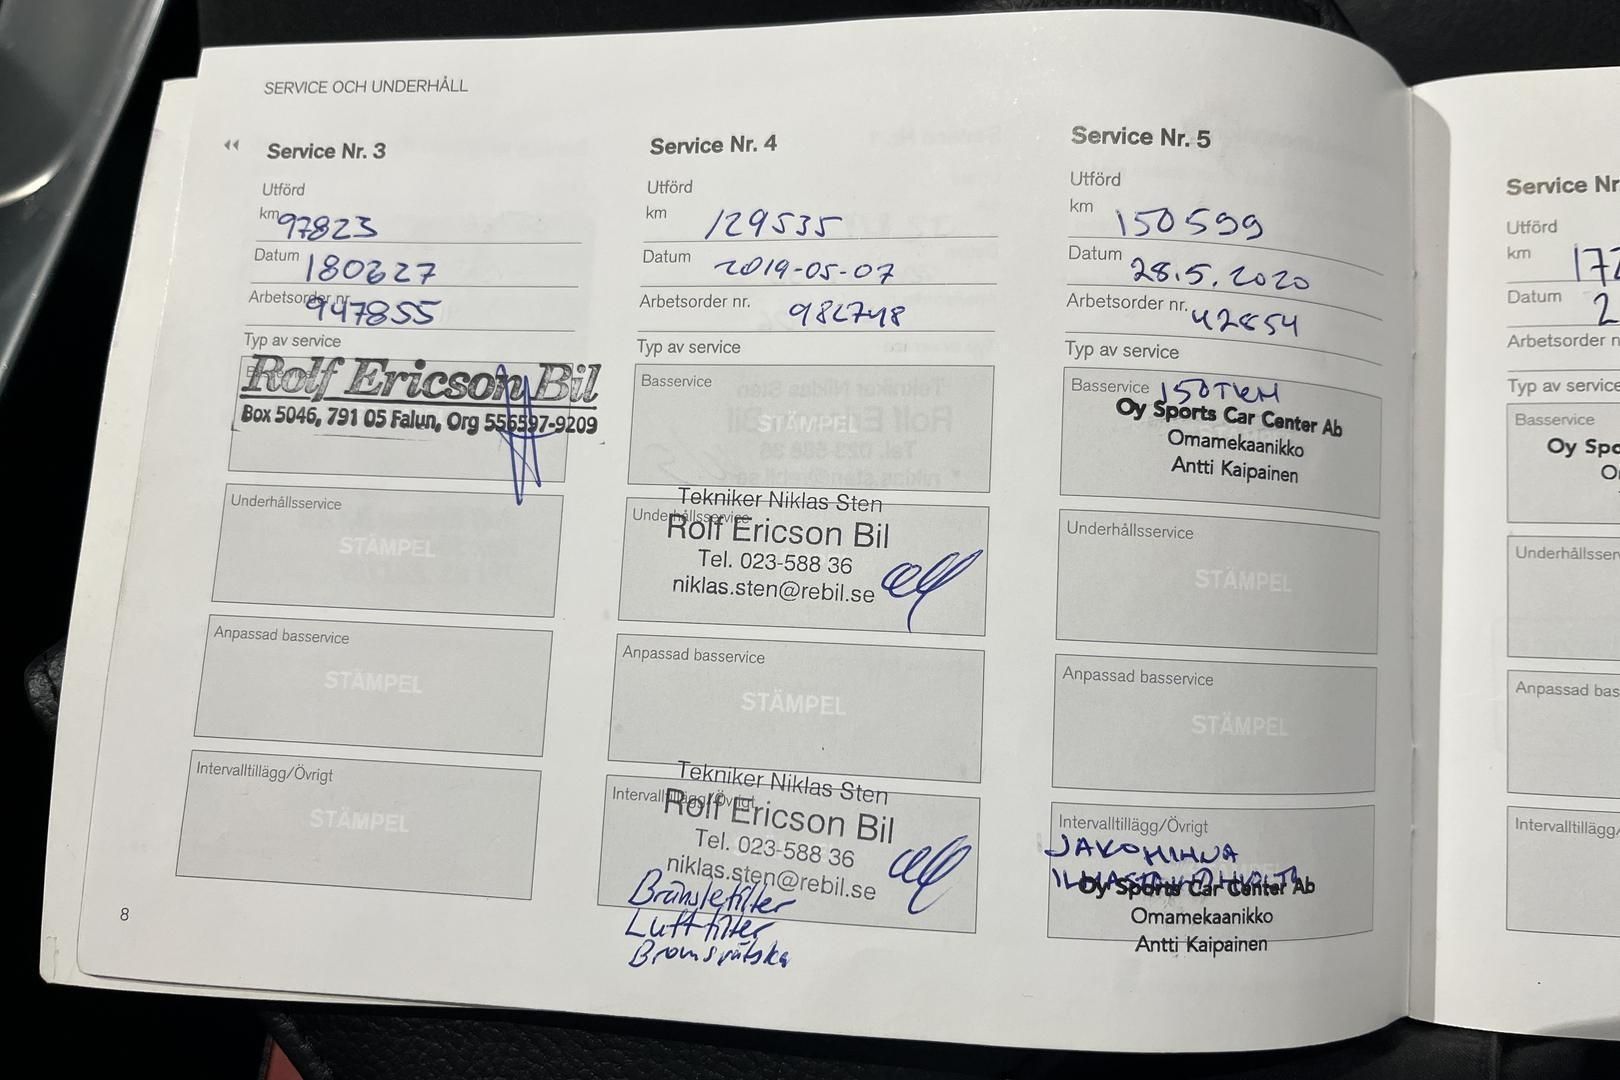 SERVICE OCH UNDERHÅLL
Service Nr. 3
Utförd
km 97823
Datum 180227
Arbetsorder nr. 947855
Typ av service
Rolf Ericson Bil
Box 5046, 791 05 Falun, Org 556597-9209
Underhållsservice
STÄMPEL
Anpassad basservice
STÄMPEL
Intervalltillägg/Övrigt
STÄMPEL
8
Service Nr. 4
Utförd
km 129535
Datum 2019-05-07
Arbetsorder nr. 982748
Typ av service
Basservice
STÄMPEL
Tekniker Niklas Sten
Underhållsservice
Rolf Ericson Bil
Tel. 023-588 36
niklas.sten@rebil.se
Anpassad basservice
STÄMPEL
Tekniker Niklas Sten
Intervalltillägg/Övrigt
Rolf Ericson Bil
Tel. 023-588 36
niklas.sten@rebil.se
Bränslefilter
Luftfilter
Bromsvätska
Service Nr. 5
Utförd
km 150599
Datum 28.5.2020
Arbetsorder nr. 42854
Typ av service
Basservice 150TKM
Oy Sports Car Center Ab
Omamekaanikko
Antti Kaipainen
Underhållsservice
STÄMPEL
Anpassad basservice
STÄMPEL
Intervalltillägg/Övrigt
JAKOHIHNA
Oy Sports Car Center Ab
Omamekaanikko
Antti Kaipainen
Service Nr
Utförd
km 172
Datum 2
Arbetsorder n
Typ av service
Basservice
Oy Spo
Underhållsser
Anpassad bas
Intervalltillägg/